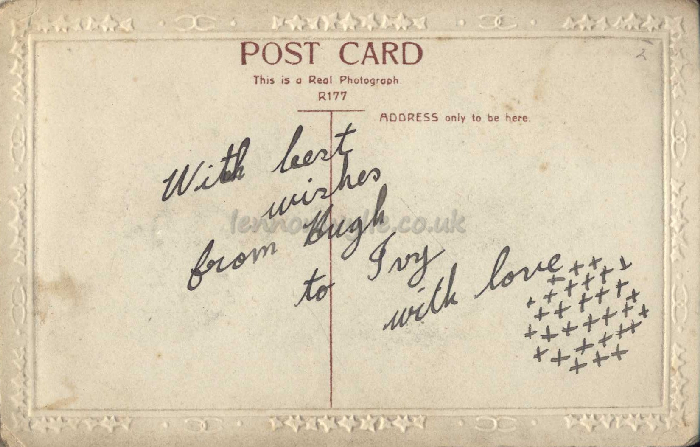 POST CARD
This is a Real Photograph
R177
ADDRESS only to be here.
With best
wishes
from Hugh
to Ivy
with love